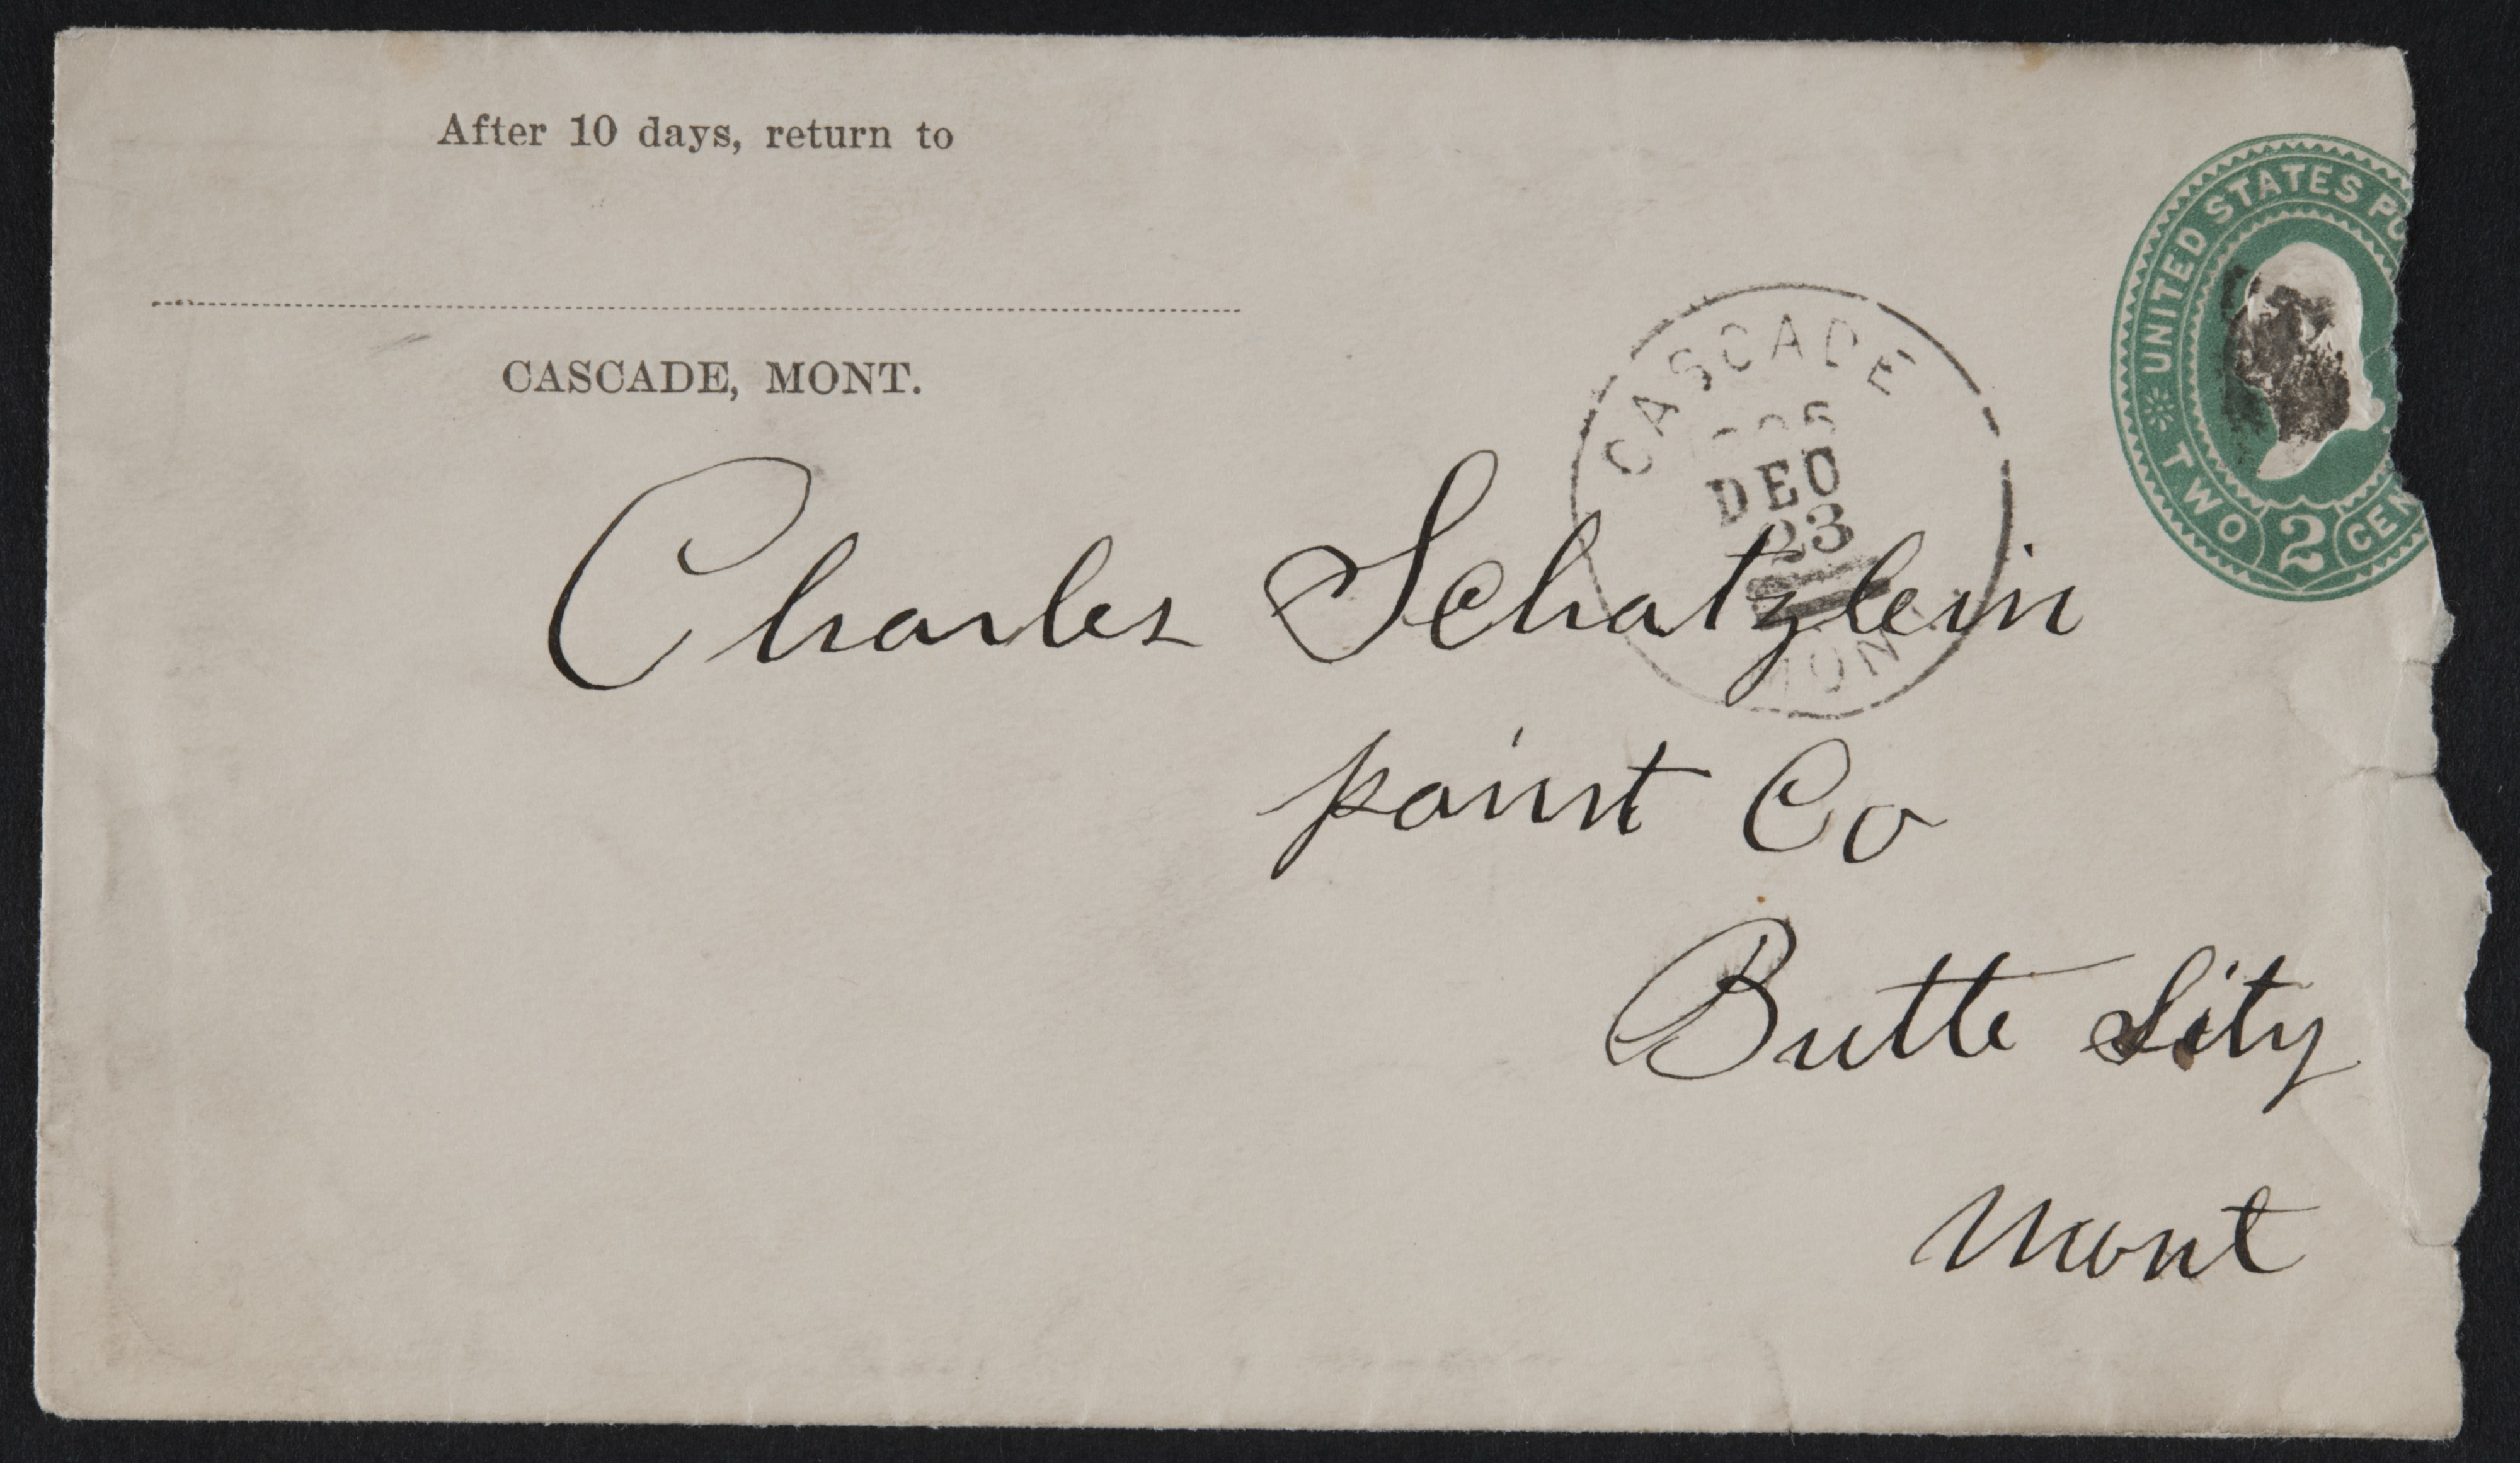 After 10 days, return to
CASCADE, MONT.
UNITED STATES PO
TWO 2 CEN
CASCADE
DEC
23
MONT
Charles Schatzlein
paint Co
Butte City
Mont